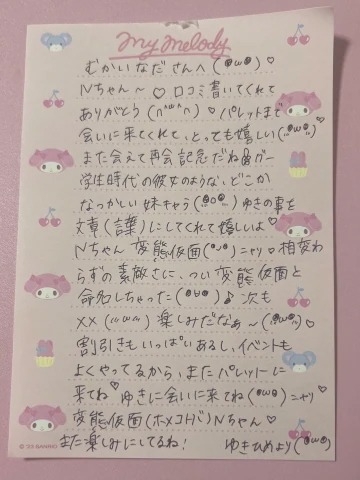 My Melody
むかいなださんへ(•̤ω•̤)♡
Nちゃん〜♡口コミ書いてくれて
ありがとう(∩´ω`∩)♡パレットまで
会いに来てくれて、とっても嬉しい(„•ω•„)
また会えて再会記念だね
学生時代の彼女のような、どこか
なつかしい妹キャラ(•o•)♡ゆきの事を
文章()にしてくれて嬉しいよ♡
Nちゃん変態仮面(•ᴗ•)ニヤリ♡相変わ
らずの素敵さに、つい変態仮面と
命名しちゃった(•∀•)♪次も
××(〃ω〃)楽しみだなぁ〜(„•ω•„)♡
割引きもいっぱいあるし、イベントも
よくやってるから、またパレットに
来てね♡ゆきに会いに来てね(•ω•)ニヤリ♡
変態仮面(ホメコトバ)Nちゃん♡
また楽しみにしてるね! ゆきひめより(•ω•)
©'23 SANRIO